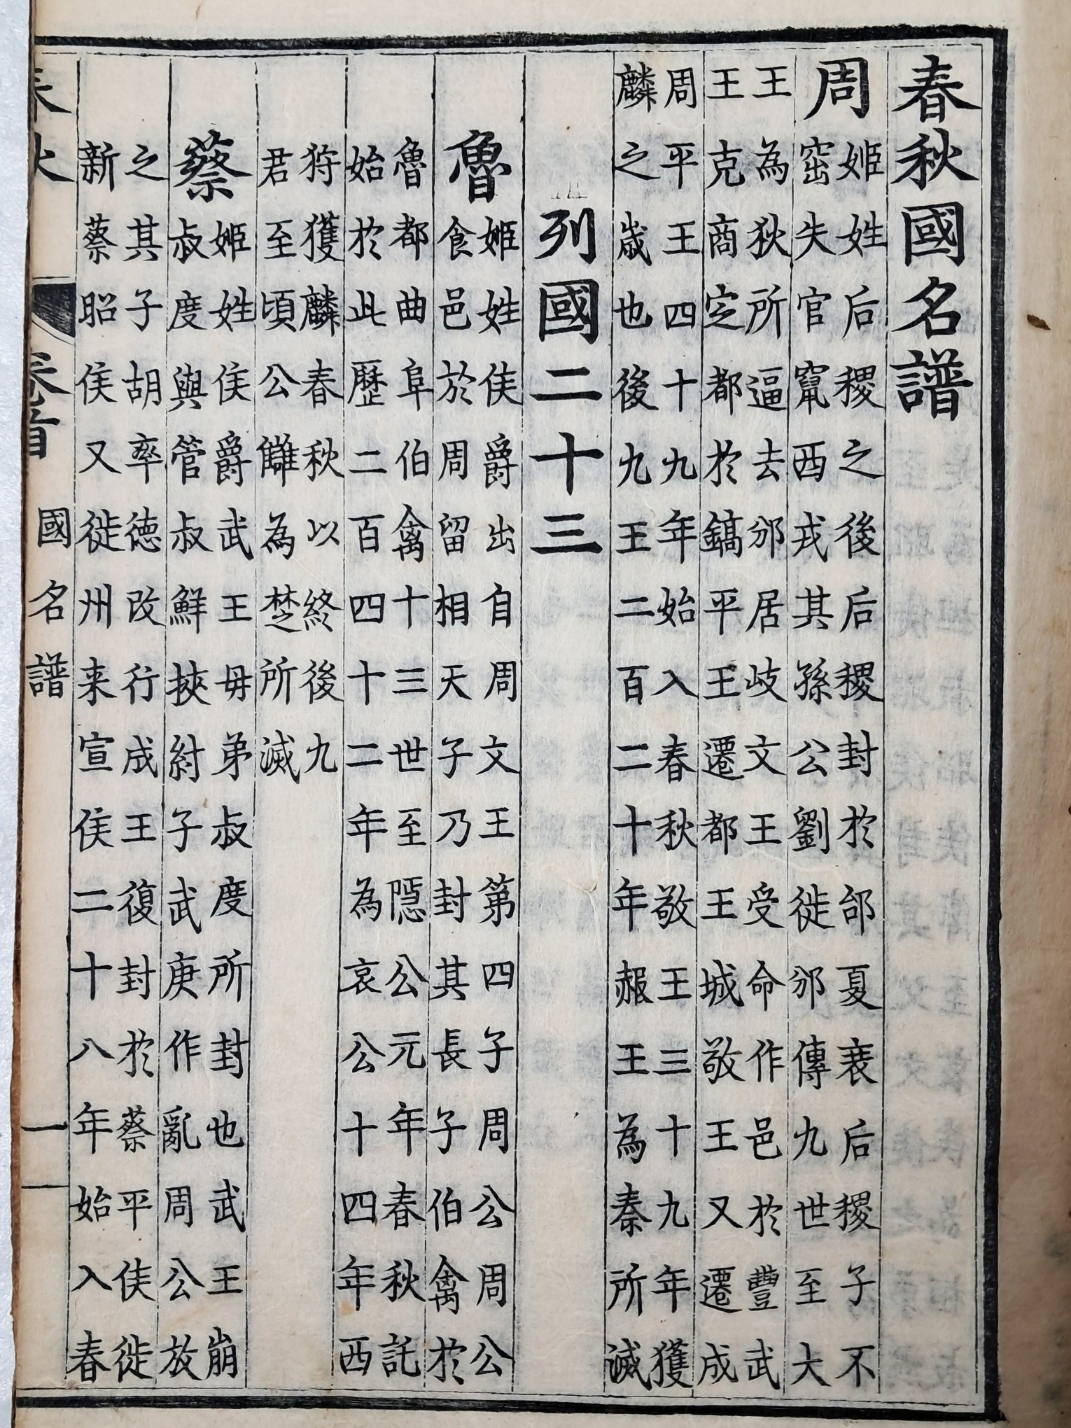 春秋國名譜
周
姬姓后稷之後后稷封於邰夏衰后稷子不
窋失官竄西戎其孫公劉徙邠傳九世至大
王為狄所逼去邠居岐文王受命作邑於豐武
王克商定都於鎬平王遷都王城敬王又遷成
周平王四十九年始入春秋敬王三十九年獲
麟之歲也後九王二百二十年赧王為秦所滅
列國二十三
魯
姬姓侯爵出自周文王第四子周公周公
食邑於周留相天子乃封其長子伯禽於
魯都曲阜伯禽十三世至隱公元年春秋託
始於此歷二百四十二年為哀公十四年西
狩獲麟春秋以終後九
君至頃公讎為楚所滅
蔡
姬姓侯爵武王毋弟叔度所封也武王崩
叔度與管叔鮮挾紂子武庚作亂周公放
之其子胡率德改行成王復封於蔡平侯徙
新蔡昭侯又徙州来宣侯二十八年始入春
春秋
卷首
國名譜
一